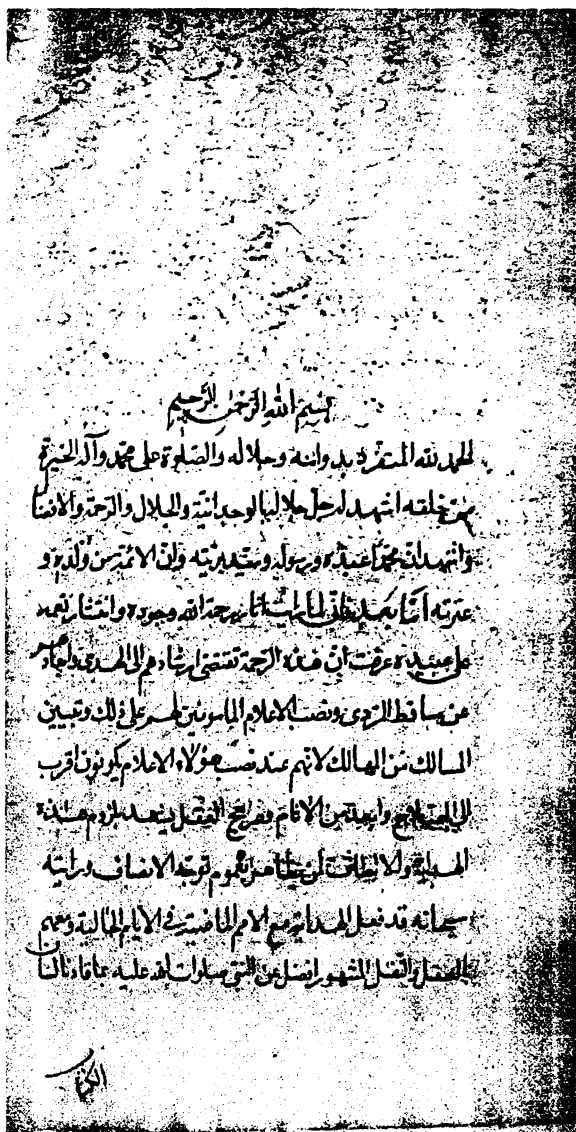 بسم الله الرحمن الرحيم
الحمد لله المتفرد بدوامه وجلاله والصلوة على محمد وآله الخيرة
من خلقه اشهد له جل جلاله بالوحدانية والجلال والرحمة والافضال
واشهد ان محمدا عبده ورسوله وسيد بريته وان الائمة من ولده و
عترته اما بعد فاني لما رايت اثار رحمة الله وجوده وانتشار نعمه
على عبيده عرفت ان هذه الرحمة تقتضى ارشادهم الى الهدى وابعادهم
عن مساقط الردى ونصب الاعلام المامونين لهم على ذلك وتبيين
المسالك من المهالك لانهم عند نصب هؤلاء الاعلام يكونون اقرب
الى وابعد من الاثام وصرايح العقل يشهد بلزوم هذه
الهداية والالطاف لمن توجه الانصاف ورايته
سبحانه قد فعل الهداية مع الامم الماضية فى الايام الخالية
بالعقل والنقل المشهور افضل عن النبى صلوات الله عليه
الكرى